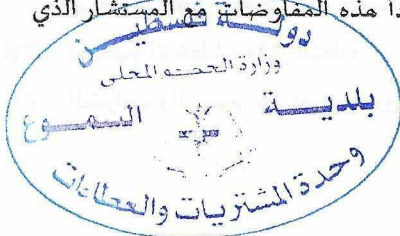 هذه المفاوضات مع المستشار الذي
دولة فلسطين
وزارة الحكم المحلي
بلدية السموع
وحدة المشتريات والعطاءات